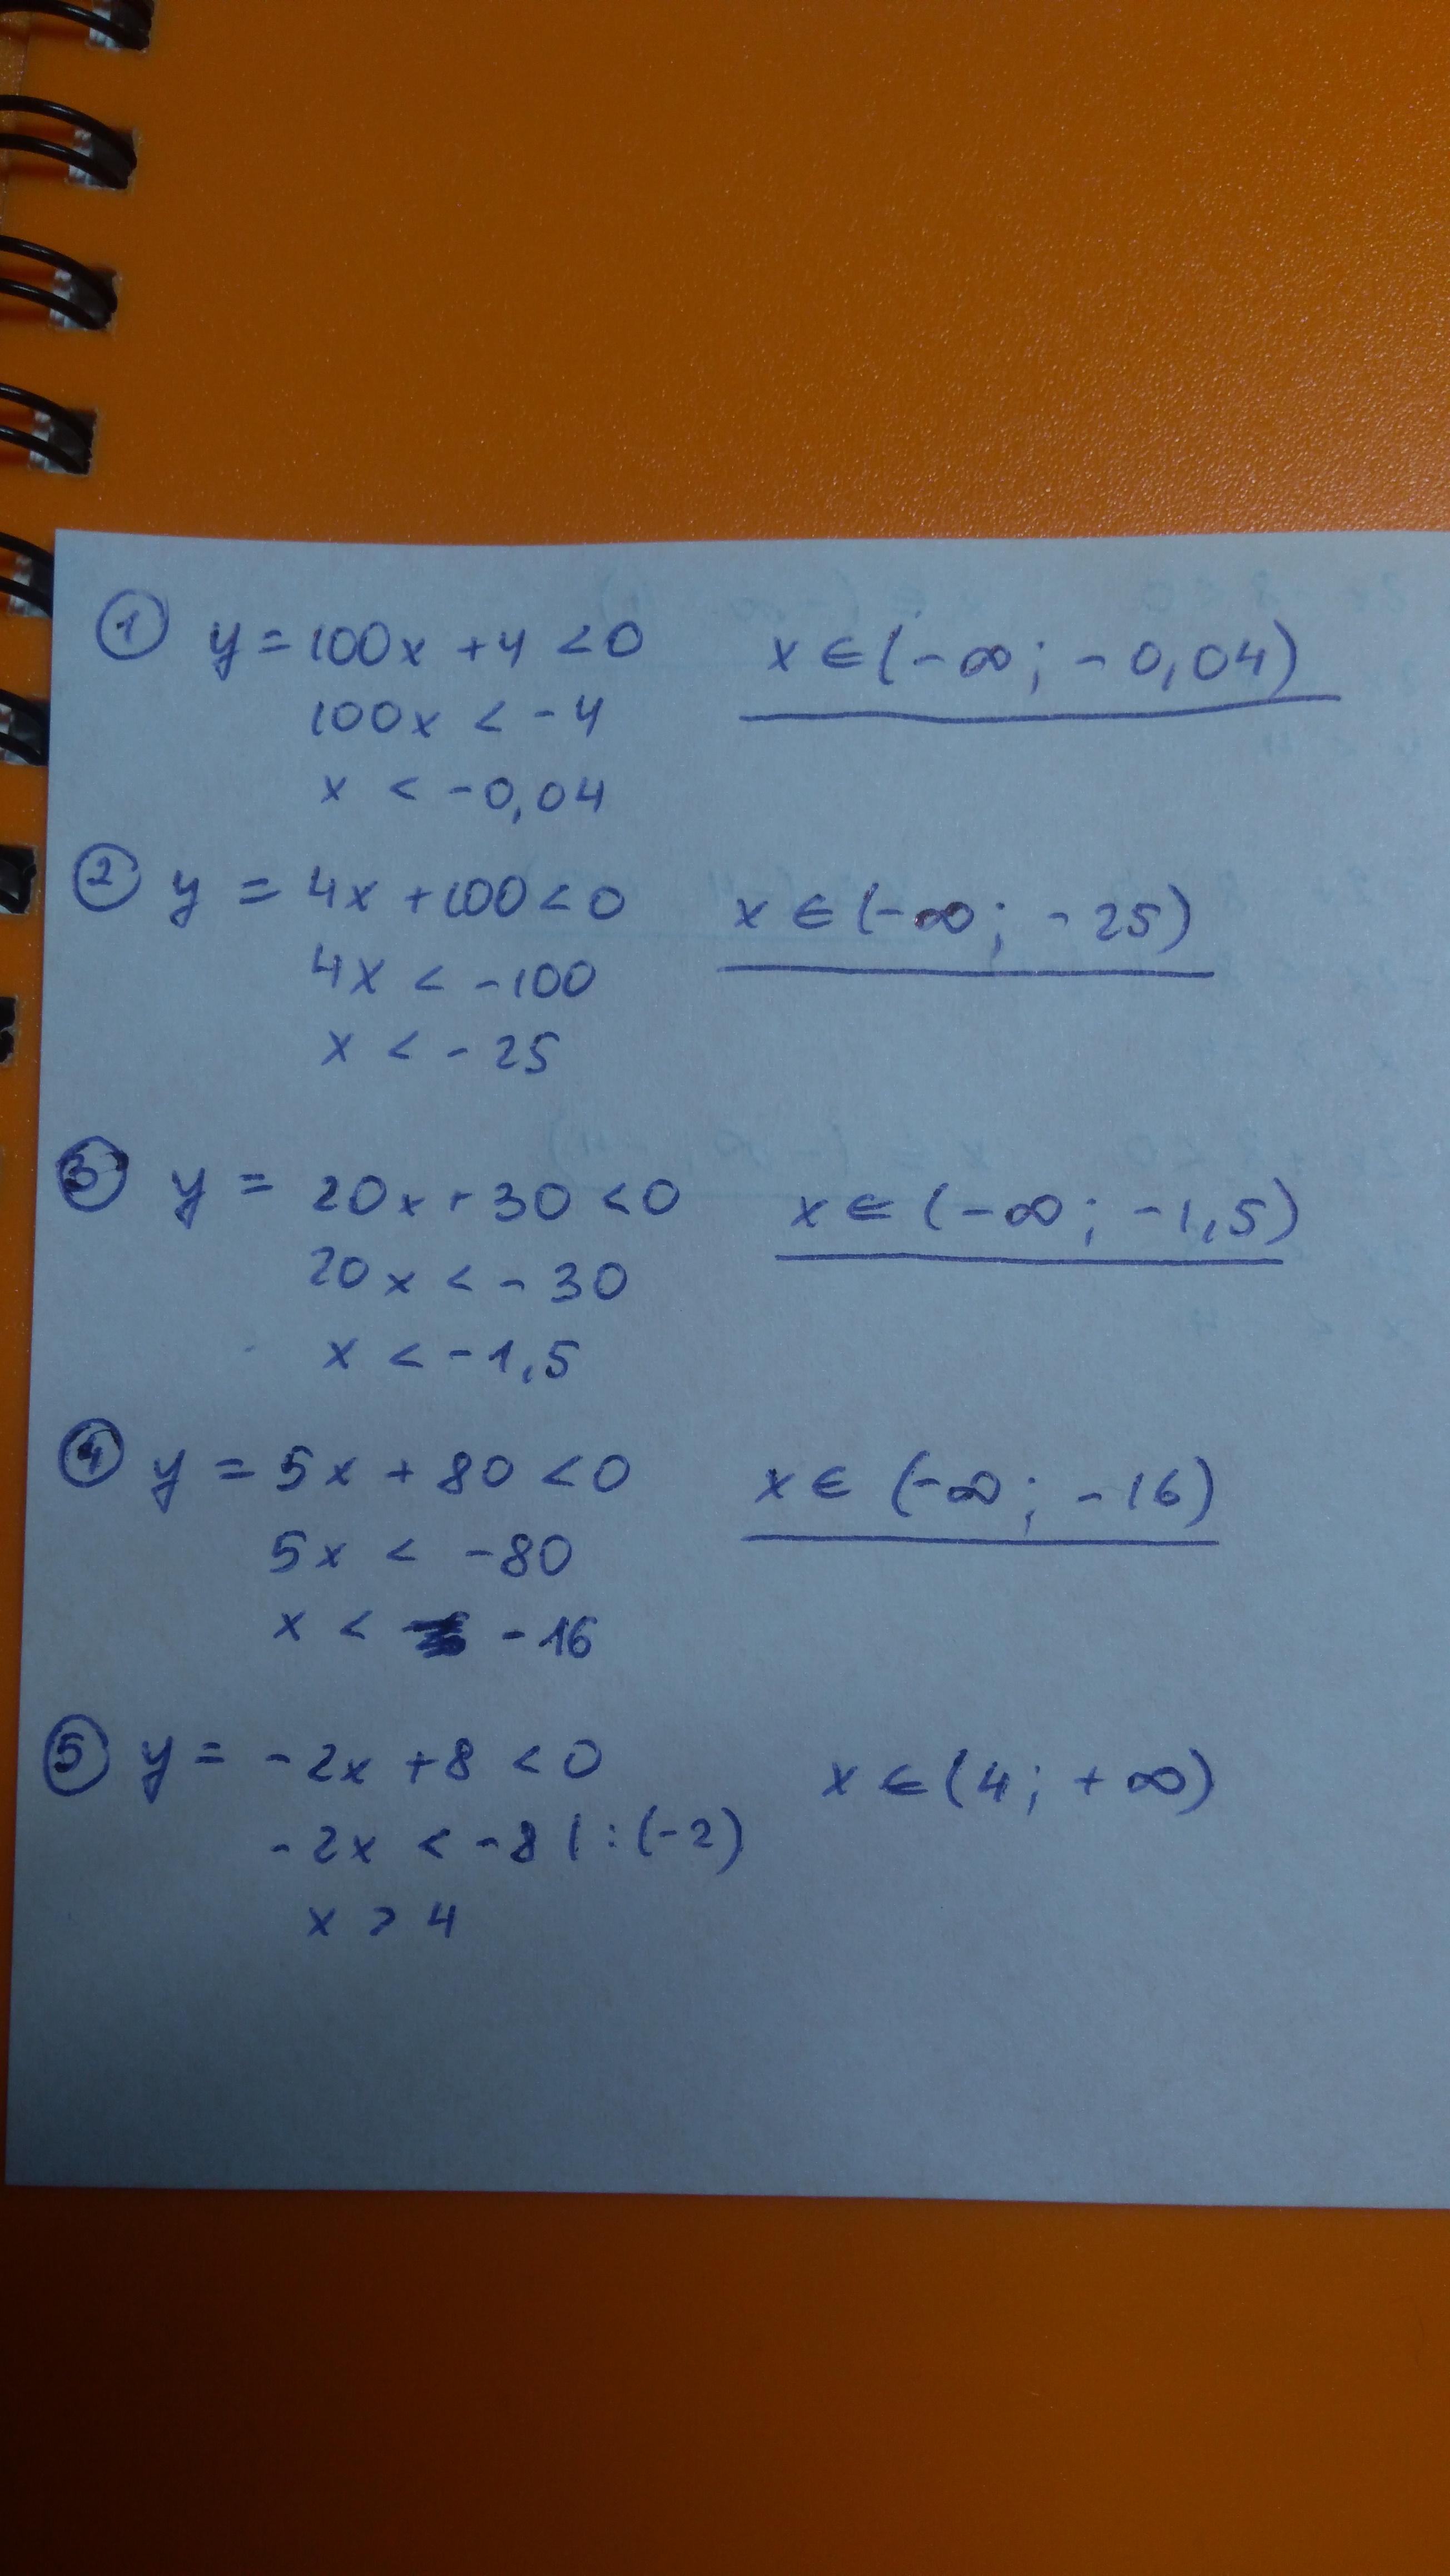 ① y = 100x + 4 < 0 x ∈ (-∞; -0,04)
100x < -4
x < -0,04
② y = 4x + 100 < 0 x ∈ (-∞; -25)
4x < -100
x < -25
③ y = 20x + 30 < 0 x ∈ (-∞; -1,5)
20x < -30
x < -1,5
④ y = 5x + 80 < 0 x ∈ (-∞; -16)
5x < -80
x < -16
⑤ y = -2x + 8 < 0 x ∈ (4; +∞)
-2x < -8 | : (-2)
x > 4